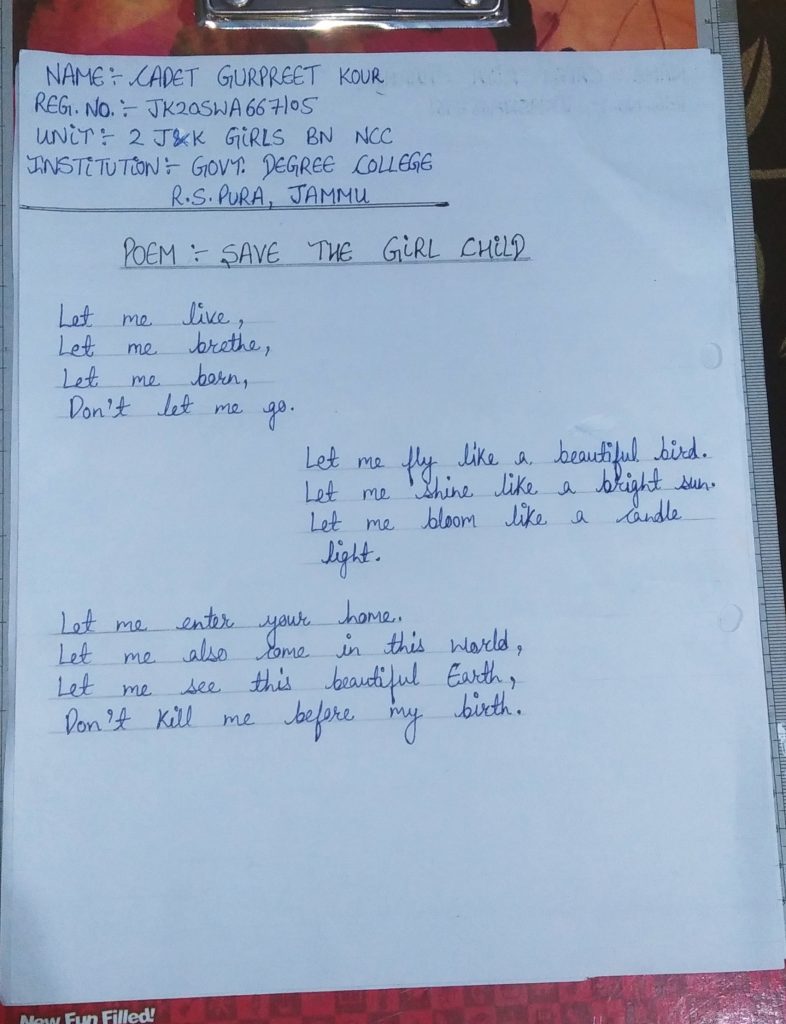 NAME:- CADET GURPREET KOUR
REG. NO. :- JK20SWA667105
UNIT :- 2 J&K GIRLS BN NCC
INSTITUTION:- GOVT. DEGREE COLLEGE
R.S.PURA, JAMMU
POEM :- SAVE THE GIRL CHILD
Let me live,
Let me brethe,
Let me born,
Don't let me go.
Let me fly like a beautiful bird.
Let me shine like a bright sun.
Let me bloom like a candle
light.
Let me enter your home.
Let me also come in this world,
Let me see this beautiful Earth,
Don't kill me before my birth.
New Fun Filled!